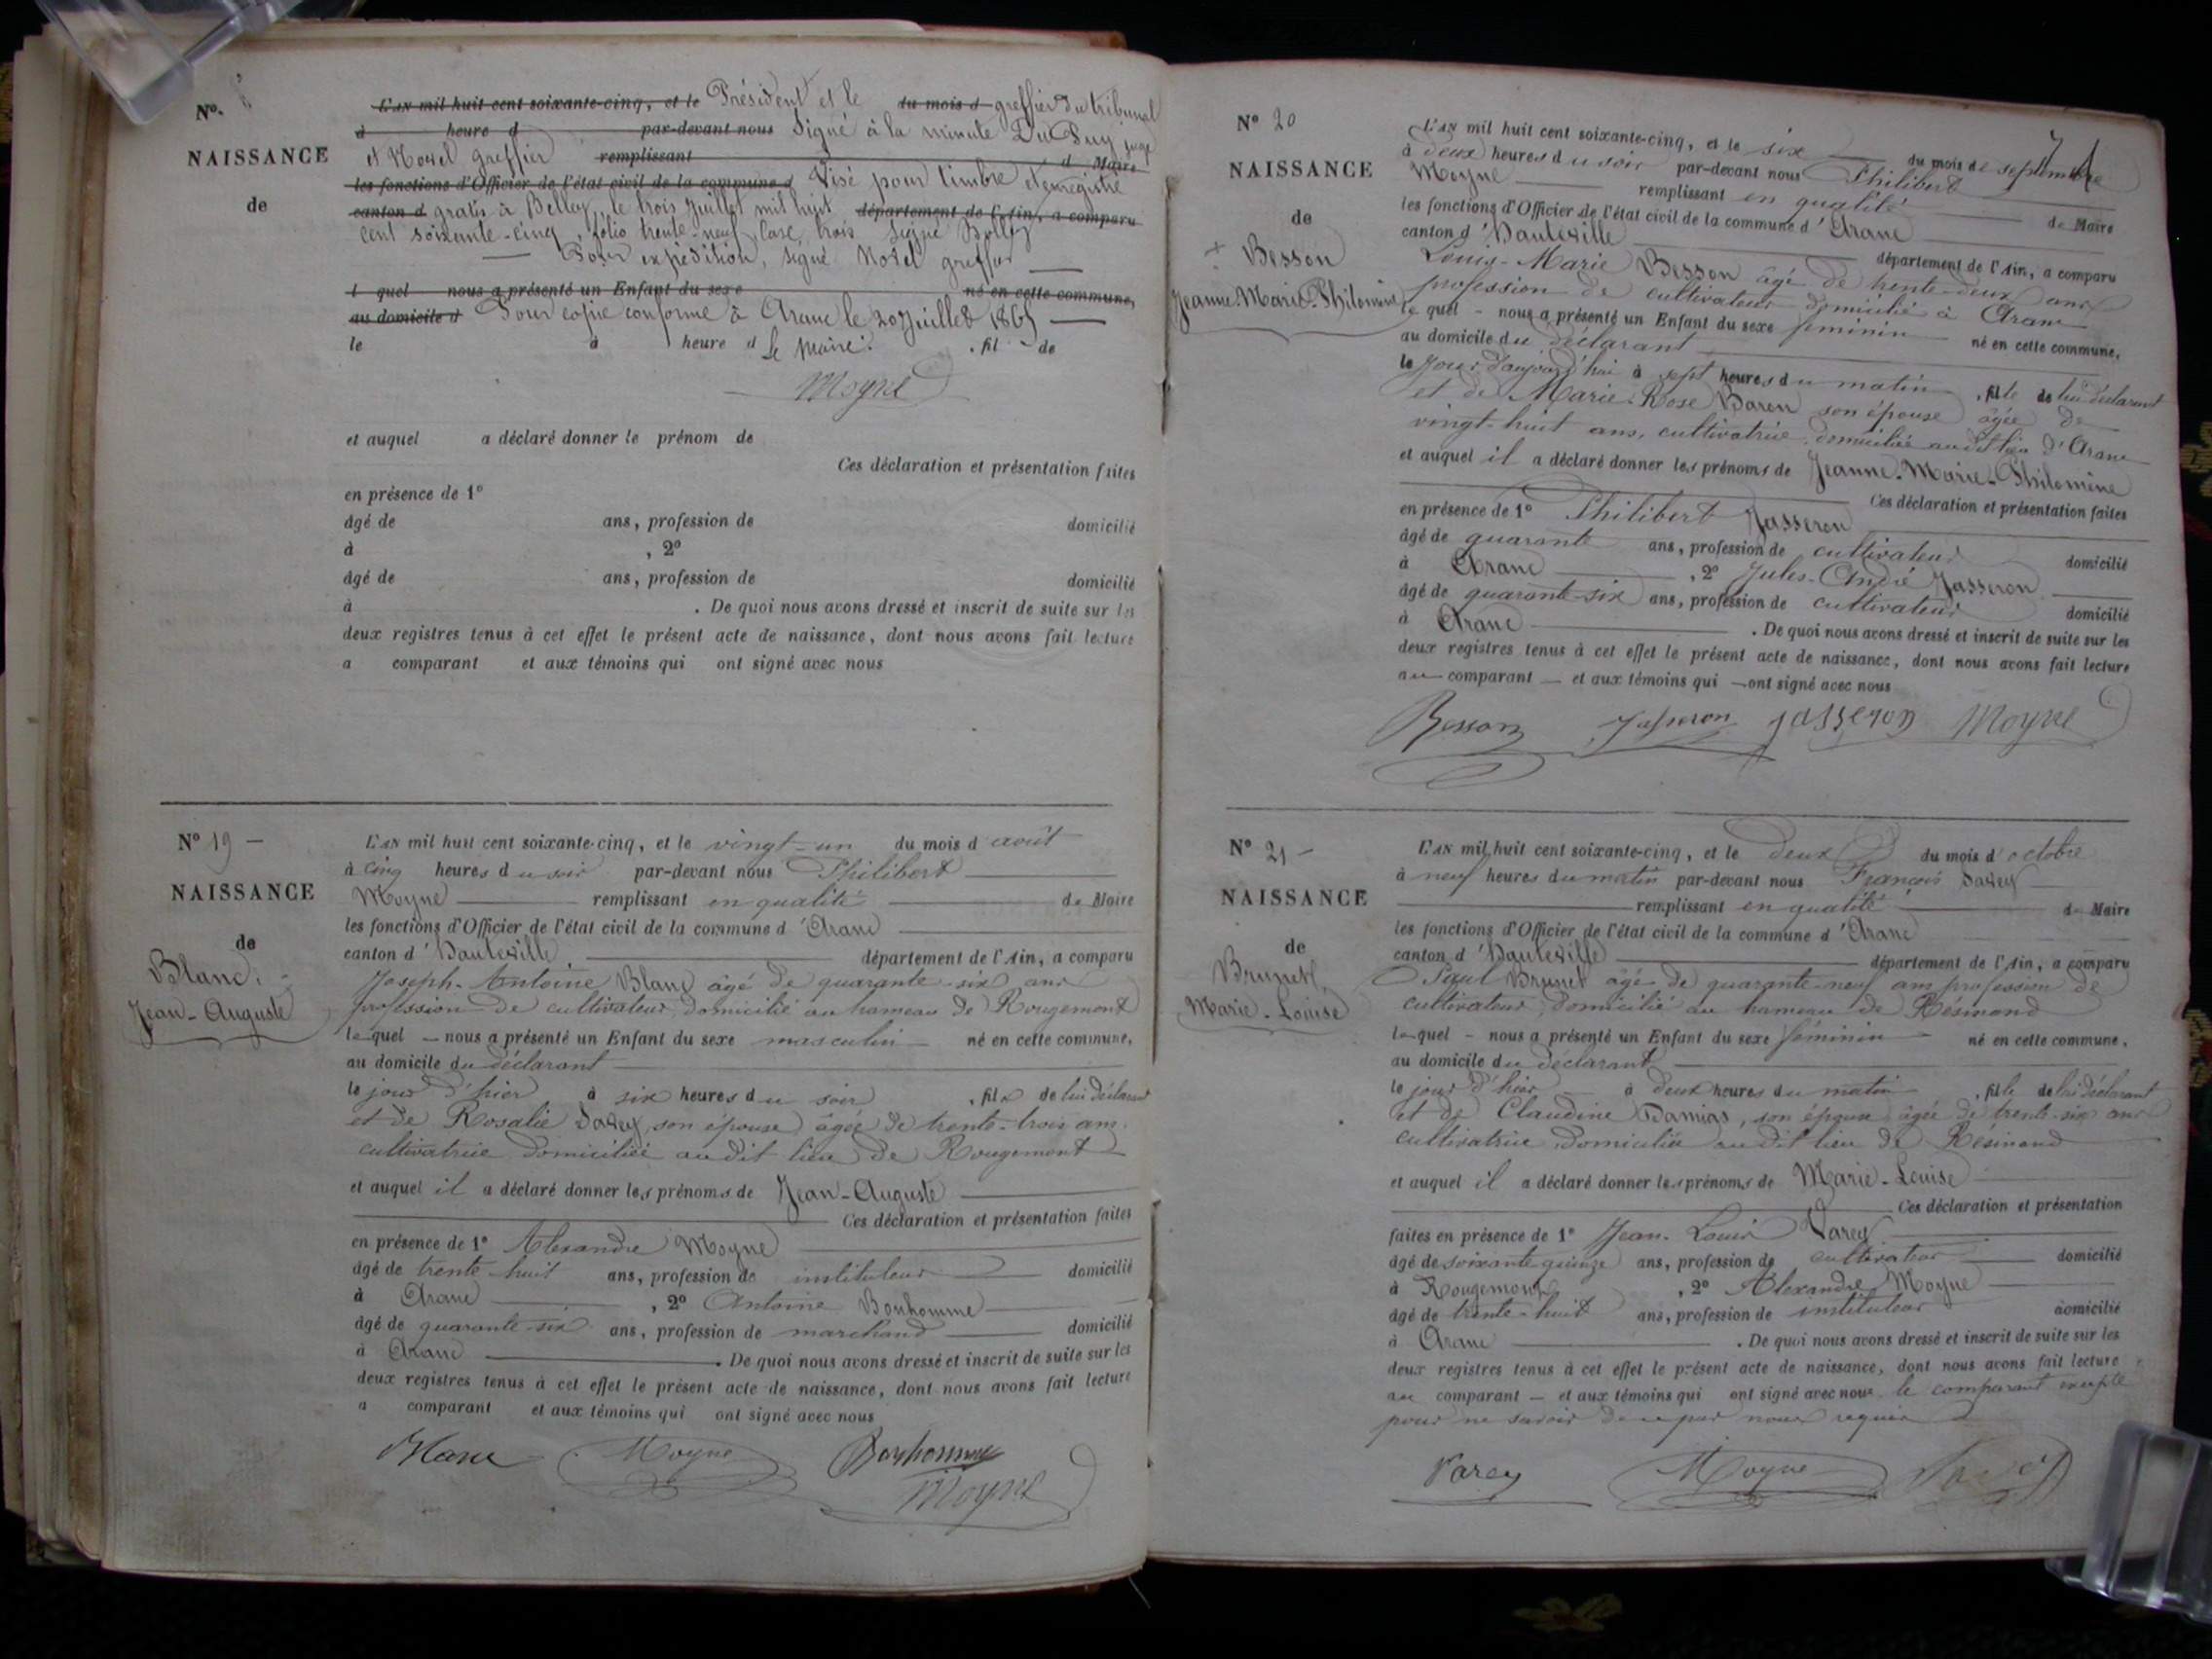 N°.
NAISSANCE
de
L'AN mil huit cent soixante-cinq, et le Président et le du mois d greffier du tribunal
à heure d par-devant nous Signé à la minute Du Puy juge
et greffier remplissant d Maire
les fonctions d'Officier de l'état civil de la commune d Visé pour timbre et enregistré
canton d gratis à Belley, le trois Juillet mil huit département de l'Ain, a comparu
cent soixante-cinq, folio trente-neuf, Case trois Signé
Pour expédition, signé greffier
l quel nous a présenté un Enfant du sexe né en cette commune,
au domicile d Pour copie conforme à Aranc le 20 Juillet 1865
le à heure d Le Maire: , fil de
Moyne
et auquel a déclaré donner le prénom de
Ces déclaration et présentation faites
en présence de 1°
âgé de ans, profession de domicilié
à , 2°
âgé de ans, profession de domicilié
à . De quoi nous avons dressé et inscrit de suite sur les
deux registres tenus à cet effet le présent acte de naissance, dont nous avons fait lecture
a comparant et aux témoins qui ont signé avec nous
N° 19 —
NAISSANCE
de
Blanc
Jean-Auguste
L'AN mil huit cent soixante-cinq, et le vingt-un du mois d'août
à cinq heures du soir par-devant nous Philibert
Moyne remplissant en qualité de Maire
les fonctions d'Officier de l'état civil de la commune d'Aranc
canton d'Hauteville département de l'Ain, a comparu
Joseph-Antoine Blanc âgé de quarante-six ans
profession de cultivateur, domicilié au hameau de Rougemont
lequel — nous a présenté un Enfant du sexe masculin né en cette commune,
au domicile du déclarant
le jour d'hier à six heures du soir , fils de lui déclarant
et de Rosalie Savey, son épouse, âgée de trente-trois ans.
cultivatrice domiciliée audit lieu de Rougemont
et auquel il a déclaré donner les prénoms de Jean-Auguste
Ces déclaration et présentation faites
en présence de 1° Alexandre Moyne
âgé de trente-huit ans, profession de instituteur domicilié
à Aranc , 2° Antoine Bonhomme
âgé de quarante-six ans, profession de marchand domicilié
à Aranc . De quoi nous avons dressé et inscrit de suite sur les
deux registres tenus à cet effet le présent acte de naissance, dont nous avons fait lecture
a comparant et aux témoins qui ont signé avec nous
Blanc Moyne Bonhomme
Moyne
N° 20
NAISSANCE
de
Besson
Jeanne-Marie-Philomène
L'AN mil huit cent soixante-cinq, et le six du mois de septembre
à deux heures du soir par-devant nous Philibert
Moyne remplissant en qualité de Maire
les fonctions d'Officier de l'état civil de la commune d'Aranc
canton d'Hauteville département de l'Ain, a comparu
Louis-Marie Besson âgé de trente-deux ans
profession de cultivateur domicilié à Aranc
lequel - nous a présenté un Enfant du sexe féminin né en cette commune,
au domicile du déclarant
le jour d'aujourd'hui à sept heures du matin , fille de lui déclarant
et de Marie-Rose Baron son épouse âgée de
vingt-huit ans, cultivatrice, domiciliée audit lieu d'Aranc
et auquel il a déclaré donner les prénoms de Jeanne-Marie-Philomène
Ces déclaration et présentation faites
en présence de 1° Philibert Jasseron
âgé de quarante ans, profession de cultivateur domicilié
à Aranc , 2° Jules-André Jasseron
âgé de quarante-six ans, profession de cultivateur domicilié
à Aranc . De quoi nous avons dressé et inscrit de suite sur les
deux registres tenus à cet effet le présent acte de naissance, dont nous avons fait lecture
au comparant — et aux témoins qui — ont signé avec nous
Besson Jasseron Jasseron Moyne
N° 21 —
NAISSANCE
de
Brunet,
Marie-Louise
L'AN mil huit cent soixante-cinq, et le deux du mois d'octobre
à neuf heures du matin par-devant nous François Savey
remplissant en qualité de Maire
les fonctions d'Officier de l'état civil de la commune d'Aranc
canton d'Hauteville département de l'Ain, a comparu
Paul Brunet âgé de quarante-neuf ans profession de
cultivateur, domicilié au hameau de Résinand
lequel - nous a présenté un Enfant du sexe féminin né en cette commune,
au domicile du déclarant
le jour d'hier à deux heures du matin , fille de lui déclarant
et de Claudine son épouse âgée de trente-six ans
cultivatrice domiciliée audit lieu de Résinand
et auquel il a déclaré donner les prénoms de Marie-Louise
Ces déclaration et présentation
faites en présence de 1° Jean-Louis Varey
âgé de soixante quinze ans, profession de cultivateur domicilié
à Rougemont , 2° Alexandre Moyne
âgé de trente-huit ans, profession de instituteur domicilié
à Aranc . De quoi nous avons dressé et inscrit de suite sur les
deux registres tenus à cet effet le présent acte de naissance, dont nous avons fait lecture
au comparant — et aux témoins qui ont signé avec nous le comparant excepté
pour ne savoir de ce par nous requis
Varey Moyne Savey